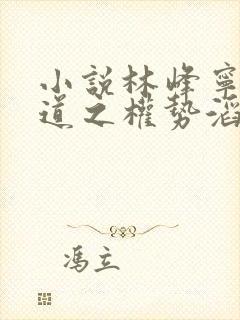 小說林峰寧
道之權勢滔
馮立